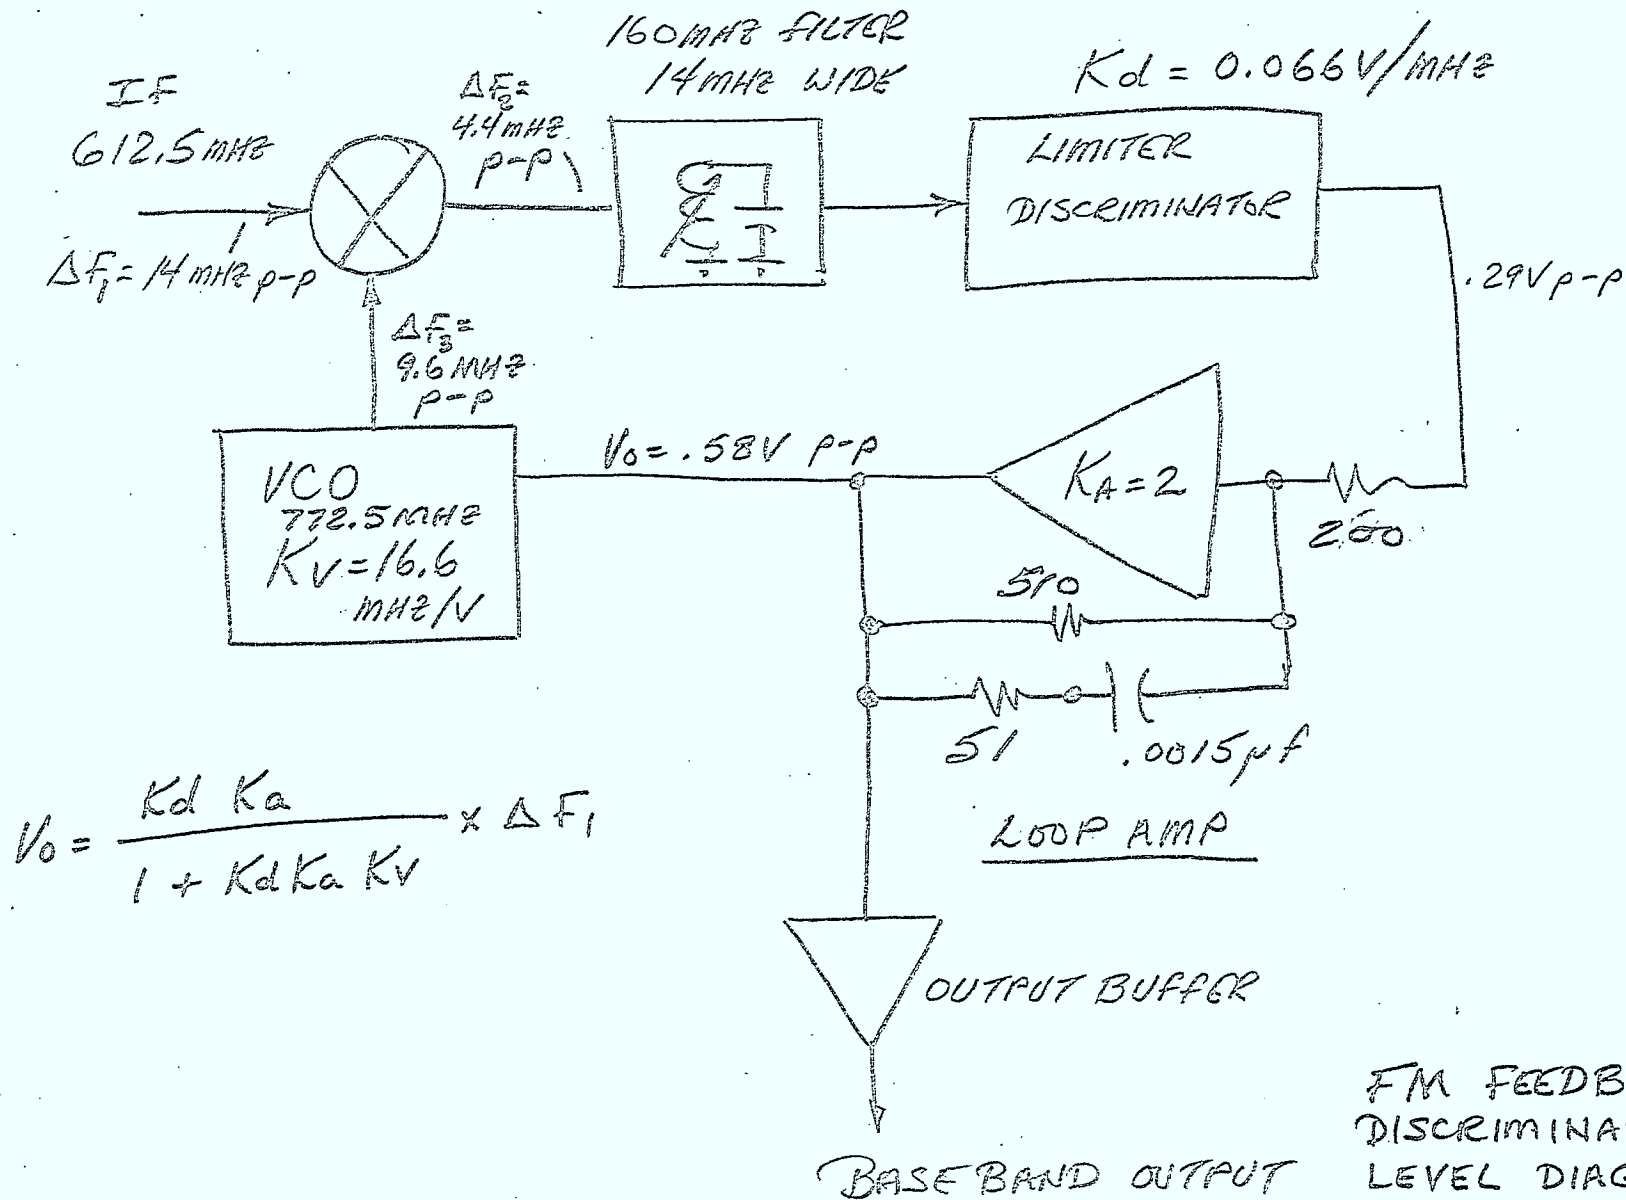 160MHZ FILTER
14MHZ WIDE
Kd = 0.066V/MHZ
IF
612.5MHZ
ΔF2=
4.4MHZ
p-p
LIMITER
DISCRIMINATOR
ΔF1=14MHZ p-p
.29V p-p
ΔF3=
9.6MHZ
p-p
VCO
772.5MHZ
KV=16.6
MHZ/V
V0=.58V p-p
KA=2
510
51
.0015μf
V0= Kd Ka / 1 + Kd Ka Kv x ΔF1
LOOP AMP
OUTPUT BUFFER
BASEBAND OUTPUT
FM FEEDB
DISCRIMINA
LEVEL DIAG